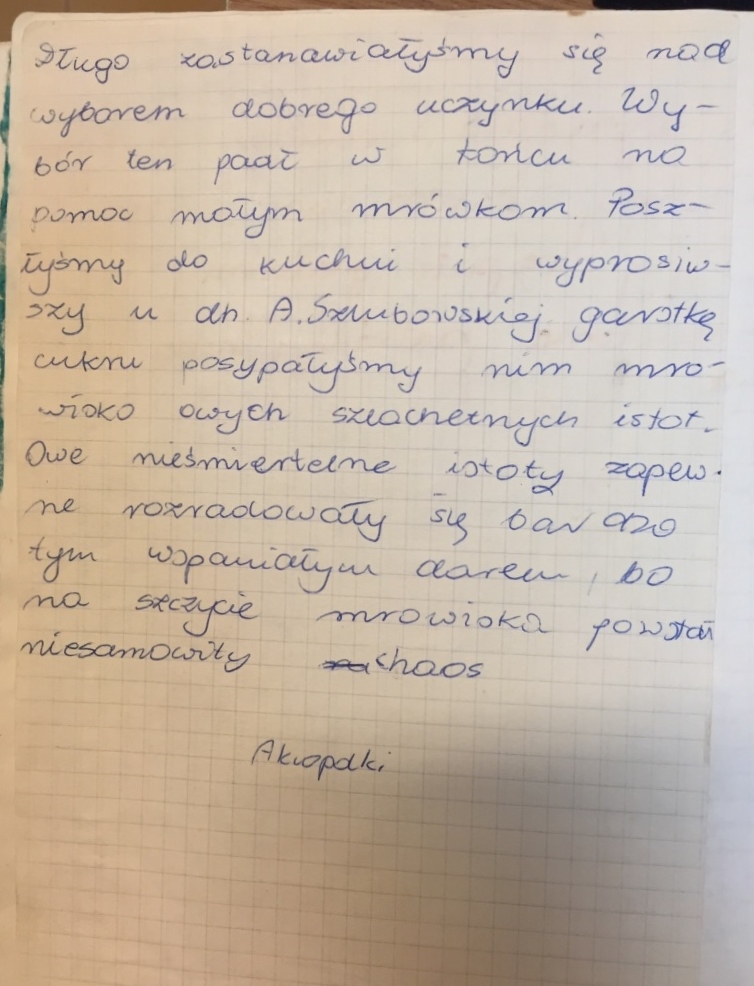 Długo zastanawiałyśmy się nad
wyborem dobrego uczynku. Wy-
bór ten padł w końcu na
pomoc małym mrówkom. Posz-
łyśmy do kuchni i wyprosiw-
szy u dh. A. Szubowskiej garstkę
cukru posypałyśmy nim mro-
wisko owych szlachetnych istot.
Owe nieśmiertelne istoty zapew-
ne rozradowały się bardzo
tym wspaniałym darem, bo
na szczycie mrowiska powstał
niesamowity chaos